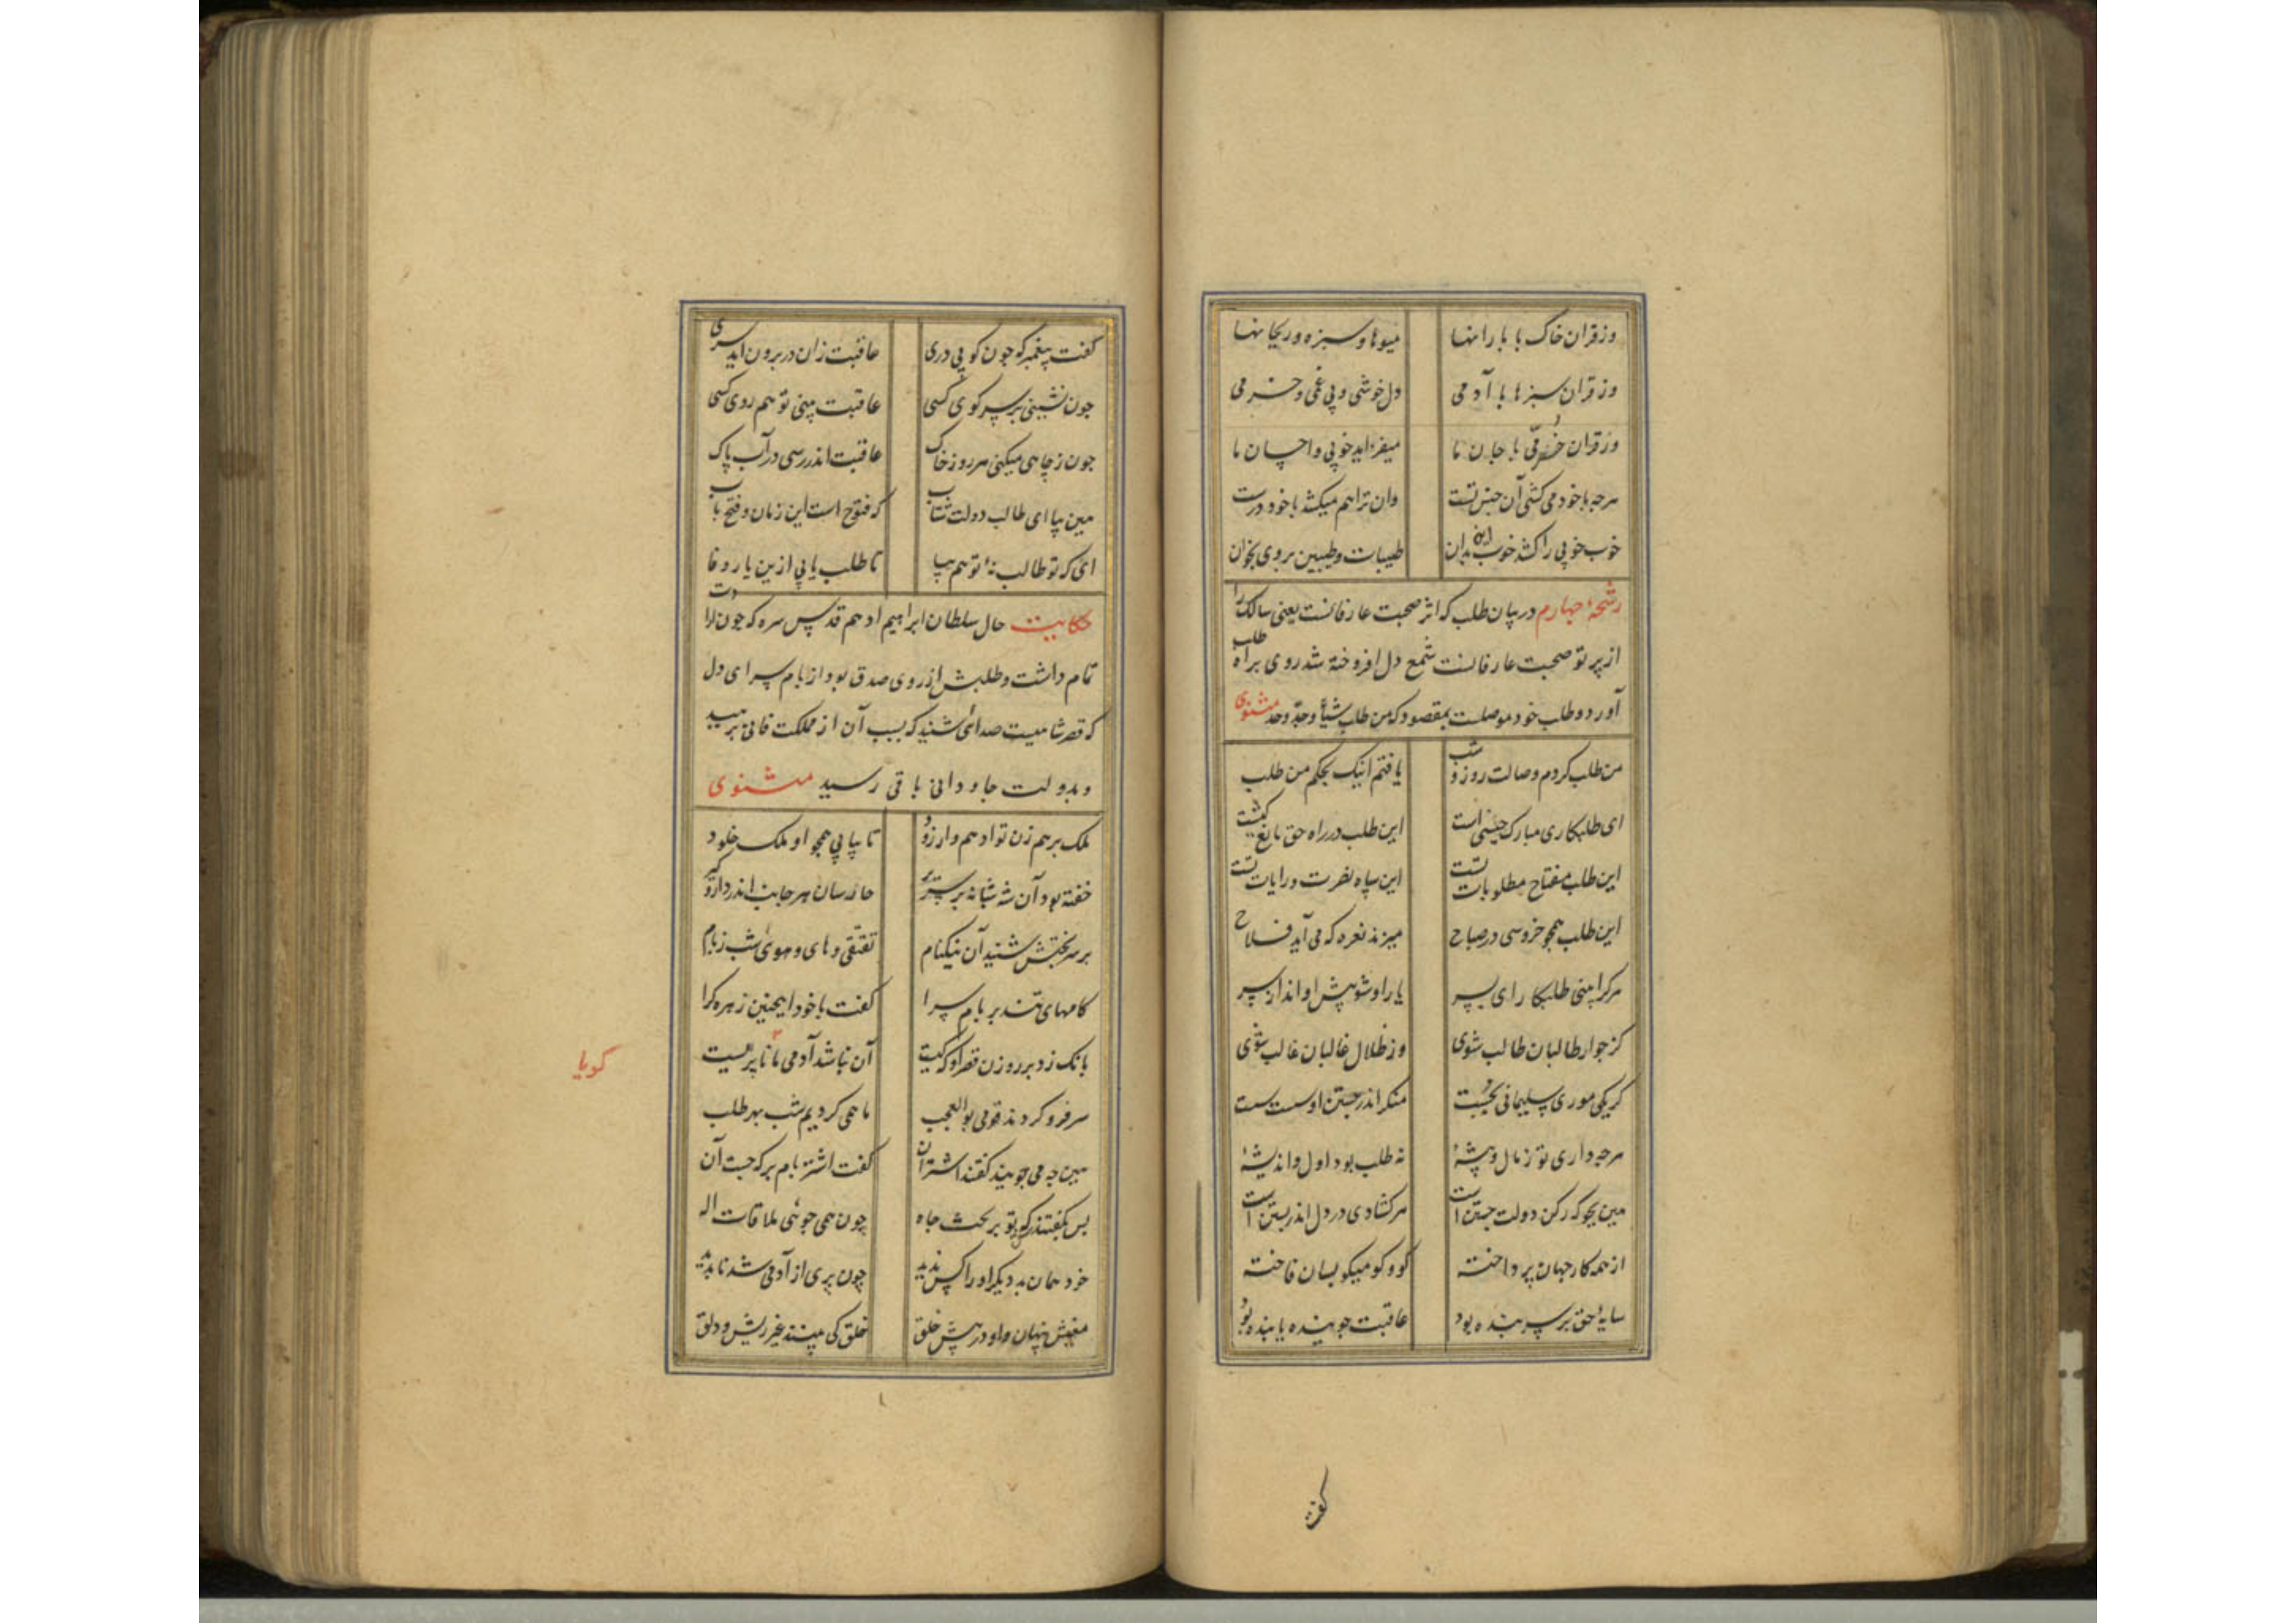 وز قران خاک با بارانها میوها و سبزه و ریحانها
وز قران سبزها با آدمی دل خوشی و بی غمی و خرمی
وز قران خرمی با جان ما میفزاید خوبی و احسان ما
هرچه با خود می کشی آن جنس تست وان ترا هم میکشد با خود درست
خوب خوبی را کشد خوب این بدان طیبات و طیبین بر وی بخوان
رشحهٔ چهارم در بیان طلب که اثر صحبت عارفانست یعنی سالک را
از پرتو صحبت عارفانست شمع دل افروخته شد روی براه طلب
آورد و طلب خود موصلست بمقصود که من طلب شیأ وجدّ وجد مثنوی
من طلب کردم وصالت روز و شب یافتم اینک بحکم من طلب
ای طلبکاری مبارک جنبشی است این طلب در راه حق مانع کشیست
این طلب مفتاح مطلوبات تست این سپاه نصرت و رایات تست
این طلب همچو خروسی در صباح میزند نعره که می آید فلاح
هرکرا بینی طلبکار ای پسر یار او شو پیش او انداز سر
کز جوار طالبان طالب شوی وز ظلال غالبان غالب شوی
کر یکی موری سلیمانی بجست منکر اندر جستن او سست سست
هرچه داری تو ز مال و پیشهٔ نه طلب بود اول و اندیشهٔ
هین بجو که رکن دولت جستن است هر کشادی در دل اندر بستن است
از همه کار جهان پرداخته کو و کو میکو بسان فاخته
سایهٔ حق بر سر بنده بود عاقبت جوینده یابنده بود
کفت
کفت پیغمبر که چون کوبی دری عاقبت زان در برون آید سری
جون نشینی بر سر کوی کسی عاقبت بینی تو هم روی کسی
جون ز چاهی میکنی هر روز خاک عاقبت اندر رسی در آب پاک
هین بیا ای طالب دولت شتاب که فتوح است این زمان و فتح باب
ای که تو طالب نهٔ تو هم بیا تا طلب یابی ازین یار وفا
حکایت حال سلطان ابراهیم ادهم قدس سره که جون ارادت
تمام داشت و طلبش از روی صدق بود از بام سرای دل
که قصر شاهیست صدائی شنید که بسبب آن از مملکت فانی برهید
و بدولت جاودانی باقی رسید مثنوی
ملک برهم زن تو ادهم وار زود تا بیابی همچو او ملک خلود
خفته بود آن شه شبانه بر سریر حارسان هر جانب اندر دار و کیر
بر سر تختش شنید آن نیکنام تقتقی و های و هوئ شب ز بام
کامهای تند بر بام سرا کفت با خود اینچنین زهره کرا
بانک زد بر روزن قصر او که کیست آن نباشد آدمی مانا پریست
کویا
سر فرو کردند قومی بوالعجب ما همی کردیم شب بهر طلب
هین چه می جویید کفتند اشتران کفت اشتر بام بر که جست آن
بس بکفتندش که تو بر تخت جاه چون همی جوئی ملاقات اله
خود همان بد دیکر او را کس ندید چون پری از آدمی شد ناپدید
معنیش پنهان و او در پیش خلق خلق کی بینند غیر ریش و دلق